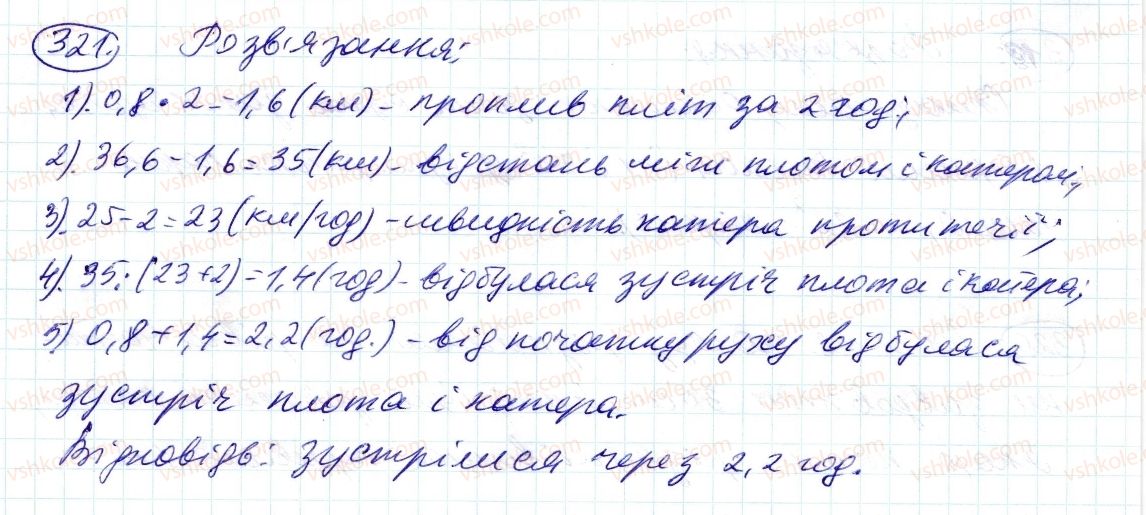 321. Розв'язання:
1). 0,8 • 2 = 1,6 (км) - проплив пліт за 2 год;
2). 36,6 - 1,6 = 35 (км) - відстань між плотом і катером;
3). 25 - 2 = 23 (км/год) - швидкість катера проти течії;
4). 35 : (23 + 2) = 1,4 (год) - відбулася зустріч плота і катера;
5) 0,8 + 1,4 = 2,2 (год.) - від початку руху відбулася
зустріч плота і катера.
Відповідь: зустрілися через 2,2 год.